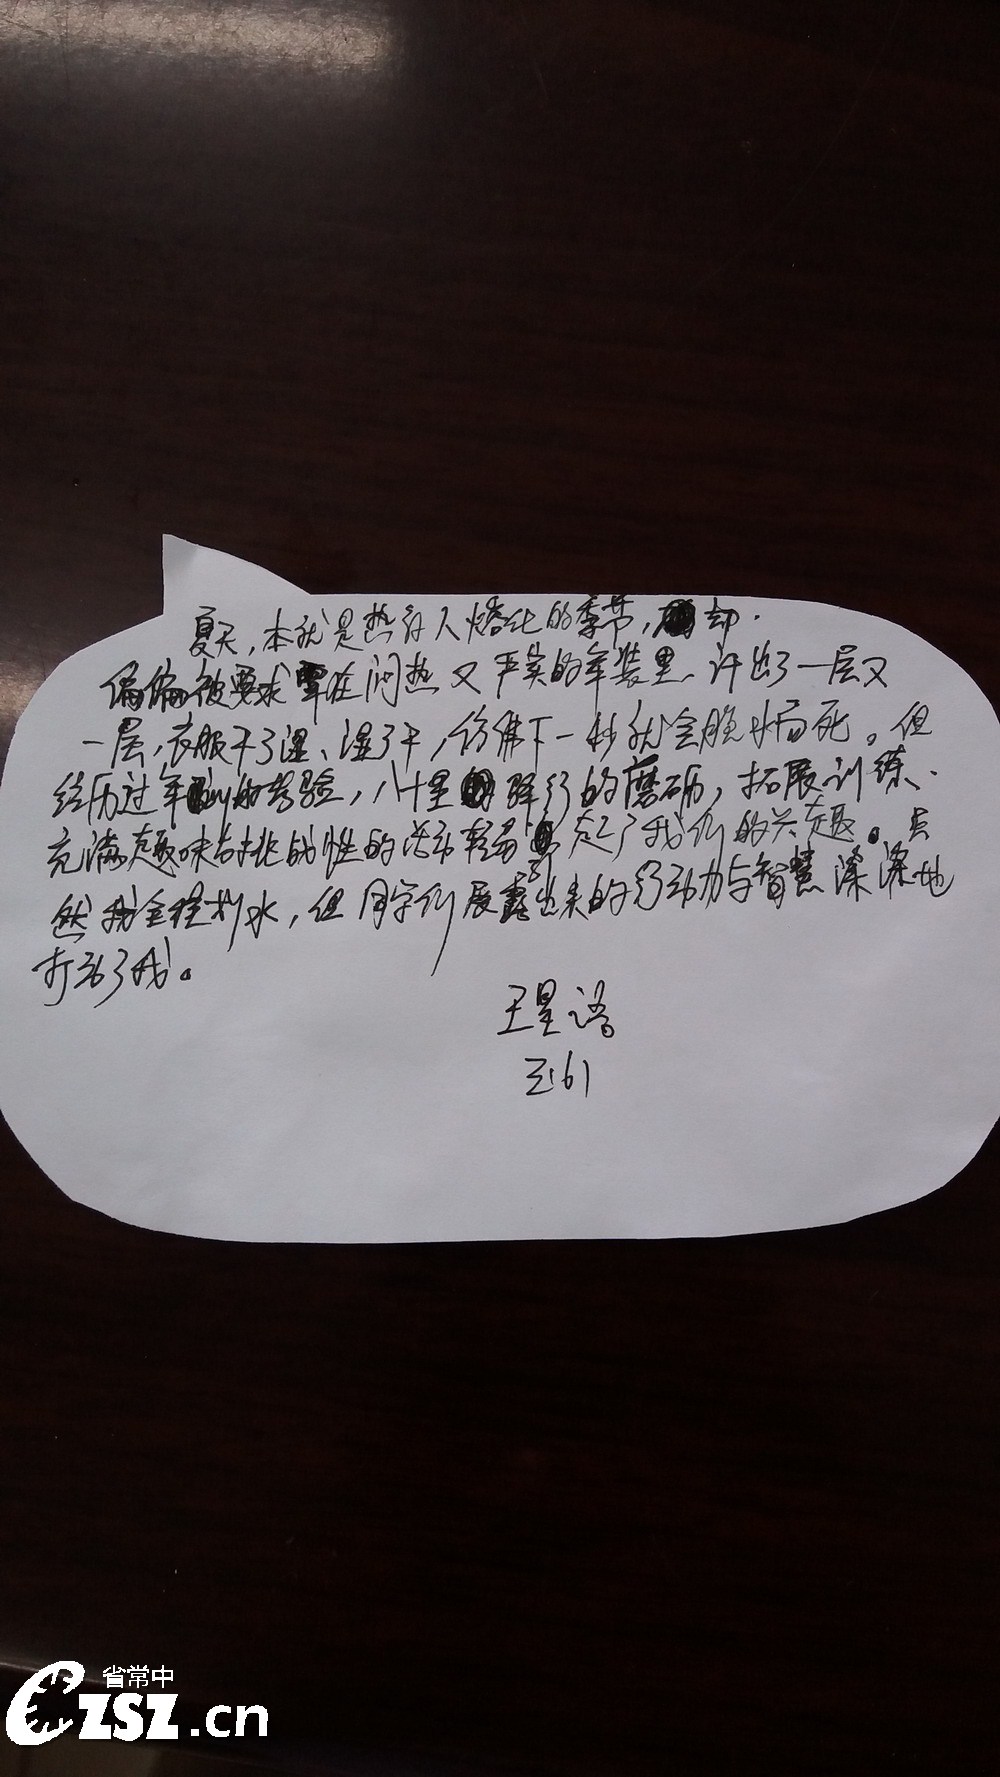 夏天,本就是热得人熔化的季节,却
偏偏被要求罩在闷热又严实的军装里、汗出了一层又
一层,衣服干了湿、湿了干,仿佛下一秒就会脱水而死。但
经历过军训的考验,八十里路行的磨砺,拓展训练、
充满趣味与挑战性的活动轻易引起了我们的兴趣。虽
然我全程划水,但同学们展露出来的行动力与智慧深深地
打动了我。
王星语
高一61
省常中
CZSZ.cn